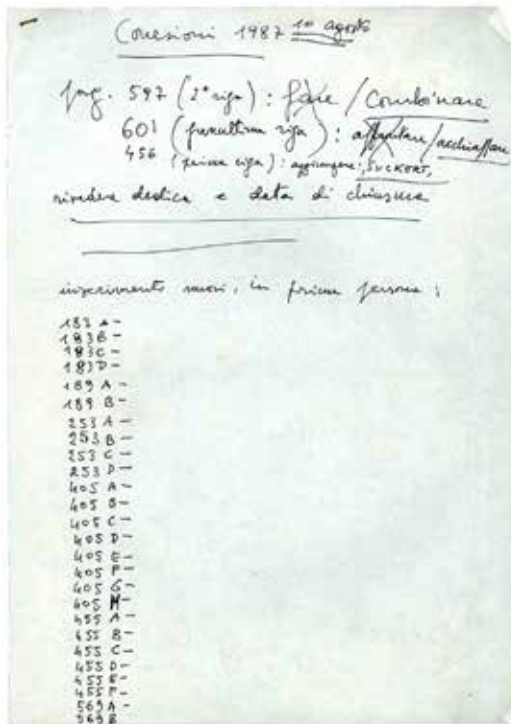 Correzioni 1987 10 agosto
pag. 597 (2ª riga) : fare / Combinare
601 (penultima riga) : affrontare / acchiappare
456 (prima riga) : aggiungere: , SUCKERT,
rivedere dedica e data di chiusura
inserimento nuovi, in prima persona :
183 A -
183 B -
183 C -
183 D -
189 A -
189 B -
253 A -
253 B -
253 C -
253 D -
405 A -
405 B -
405 C -
405 D -
405 E -
405 F -
405 G -
405 H -
455 A -
455 B -
455 C -
455 D -
455 E -
455 F -
569 A -
569 B